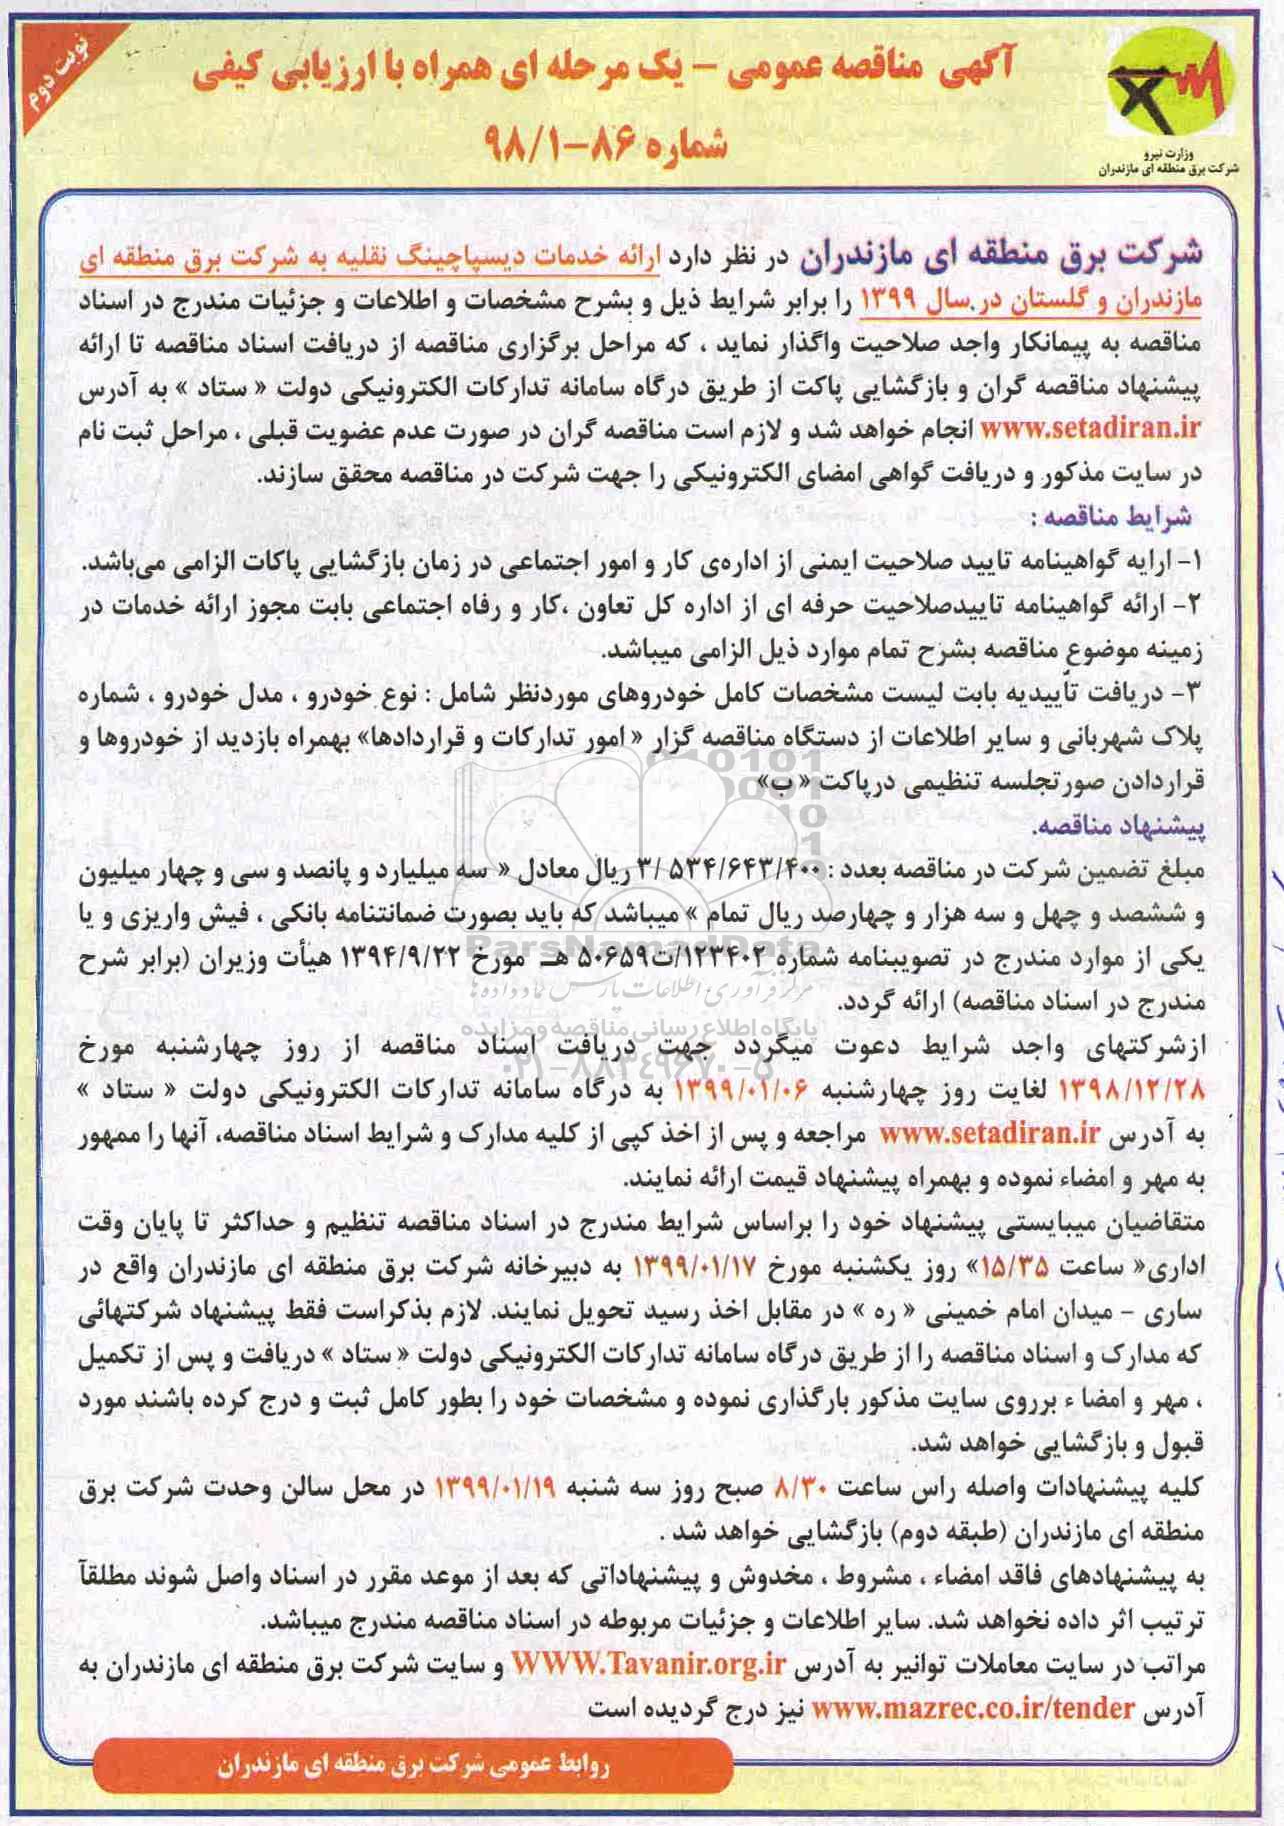 نوبت دوم
آگهی مناقصه عمومی – یک مرحله ای همراه با ارزیابی کیفی
شماره ۸۶-۹۸/۱
وزارت نیرو
شرکت برق منطقه ای مازندران
شرکت برق منطقه ای مازندران در نظر دارد ارائه خدمات دیسپاچینگ نقلیه به شرکت برق منطقه ای
مازندران و گلستان در سال ۱۳۹۹ را برابر شرایط ذیل و بشرح مشخصات و اطلاعات و جزئیات مندرج در اسناد
مناقصه به پیمانکار واجد صلاحیت واگذار نماید ، که مراحل برگزاری مناقصه از دریافت اسناد مناقصه تا ارائه
پیشنهاد مناقصه گران و بازگشایی پاکت از طریق درگاه سامانه تدارکات الکترونیکی دولت « ستاد » به آدرس
www.setadiran.ir انجام خواهد شد و لازم است مناقصه گران در صورت عدم عضویت قبلی ، مراحل ثبت نام
در سایت مذکور و دریافت گواهی امضای الکترونیکی را جهت شرکت در مناقصه محقق سازند.
شرایط مناقصه :
۱- ارایه گواهینامه تایید صلاحیت ایمنی از اداره‌ی کار و امور اجتماعی در زمان بازگشایی پاکات الزامی می‌باشد.
۲- ارائه گواهینامه تاییدصلاحیت حرفه ای از اداره کل تعاون ،کار و رفاه اجتماعی بابت مجوز ارائه خدمات در
زمینه موضوع مناقصه بشرح تمام موارد ذیل الزامی میباشد.
۳- دریافت تأییدیه بابت لیست مشخصات کامل خودروهای موردنظر شامل : نوع خودرو ، مدل خودرو ، شماره
پلاک شهربانی و سایر اطلاعات از دستگاه مناقصه گزار « امور تدارکات و قراردادها» بهمراه بازدید از خودروها و
قراردادن صورتجلسه تنظیمی درپاکت « ب»
پیشنهاد مناقصه.
مبلغ تضمین شرکت در مناقصه بعدد : ۳/ ۵۳۴/۶۴۳/۴۰۰ ریال معادل « سه میلیارد و پانصد و سی و چهار میلیون
و ششصد و چهل و سه هزار و چهارصد ریال تمام » میباشد که باید بصورت ضمانتنامه بانکی ، فیش واریزی و یا
یکی از موارد مندرج در تصویبنامه شماره ۱۲۳۴۰۲/ت۵۰۶۵۹ هـ مورخ ۱۳۹۴/۹/۲۲ هیأت وزیران (برابر شرح
مندرج در اسناد مناقصه) ارائه گردد.
ازشرکتهای واجد شرایط دعوت میگردد جهت دریافت اسناد مناقصه از روز چهارشنبه مورخ
۱۳۹۸/۱۲/۲۸ لغایت روز چهارشنبه ۱۳۹۹/۰۱/۰۶ به درگاه سامانه تدارکات الکترونیکی دولت « ستاد »
به آدرس www.setadiran.ir مراجعه و پس از اخذ کپی از کلیه مدارک و شرایط اسناد مناقصه، آنها را ممهور
به مهر و امضاء نموده و بهمراه پیشنهاد قیمت ارائه نمایند.
متقاضیان میبایستی پیشنهاد خود را براساس شرایط مندرج در اسناد مناقصه تنظیم و حداکثر تا پایان وقت
اداری« ساعت ۱۵/۳۵» روز یکشنبه مورخ ۱۳۹۹/۰۱/۱۷ به دبیرخانه شرکت برق منطقه ای مازندران واقع در
ساری – میدان امام خمینی « ره » در مقابل اخذ رسید تحویل نمایند. لازم بذکراست فقط پیشنهاد شرکتهائی
که مدارک و اسناد مناقصه را از طریق درگاه سامانه تدارکات الکترونیکی دولت « ستاد » دریافت و پس از تکمیل
، مهر و امضا ء برروی سایت مذکور بارگذاری نموده و مشخصات خود را بطور کامل ثبت و درج کرده باشند مورد
قبول و بازگشایی خواهد شد.
کلیه پیشنهادات واصله راس ساعت ۸/۳۰ صبح روز سه شنبه ۱۳۹۹/۰۱/۱۹ در محل سالن وحدت شرکت برق
منطقه ای مازندران (طبقه دوم) بازگشایی خواهد شد .
به پیشنهادهای فاقد امضاء ، مشروط ، مخدوش و پیشنهاداتی که بعد از موعد مقرر در اسناد واصل شوند مطلقآ
ترتیب اثر داده نخواهد شد. سایر اطلاعات و جزئیات مربوطه در اسناد مناقصه مندرج میباشد.
مراتب در سایت معاملات توانیر به آدرس WWW.Tavanir.org.ir و سایت شرکت برق منطقه ای مازندران به
آدرس www.mazrec.co.ir/tender نیز درج گردیده است
روابط عمومی شرکت برق منطقه ای مازندران
ParsNamadData
مرکز فرآوری اطلاعات پارس نماد داده ها
پایگاه اطلاع رسانی مناقصه و مزایده
۰۲۱-۸۸۳۴۹۶۷۰-۵